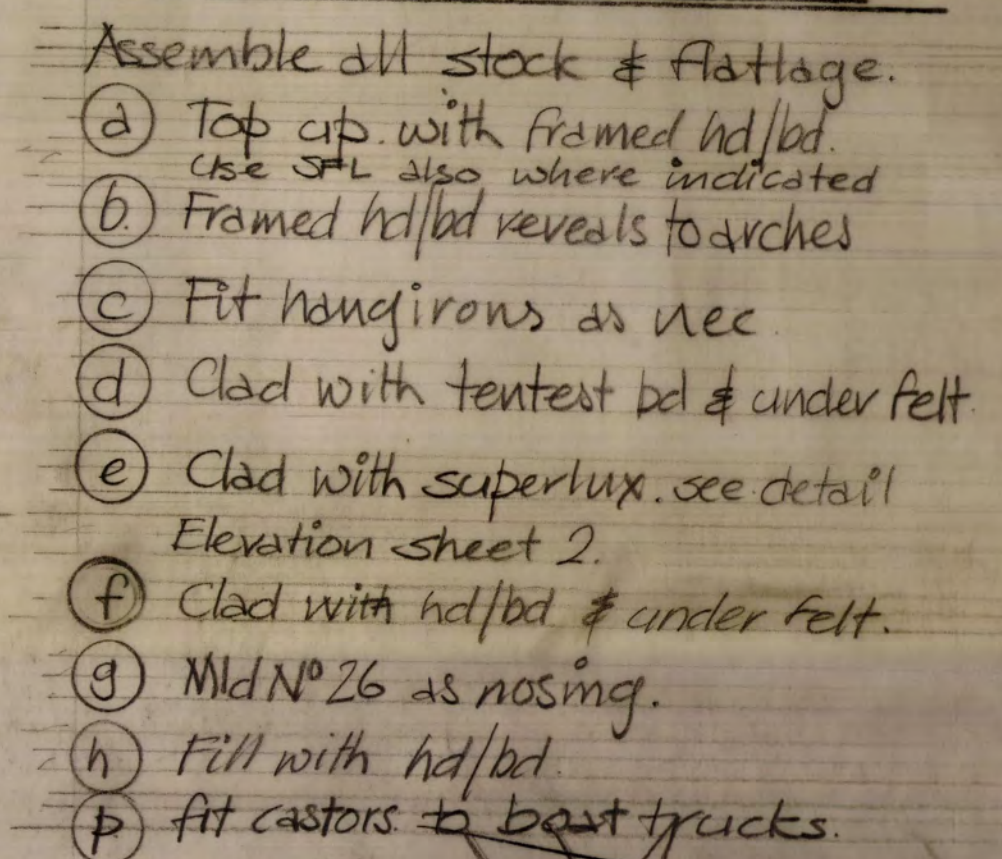 Assemble all stock & flattage.
(a) Top up. with framed hd/bd.
Use SFL also where indicated
(b.) Framed hd/bd reveals to arches
(c) Fit hangirons as nec.
(d) Clad with tentest bd & under felt.
(e) Clad with superlux. see detail
Elevation sheet 2.
(f) Clad with hd/bd & under felt.
(g) Mld Nº 26 as nosing.
(h) Fill with hd/bd.
(p) fit castors. to boat trucks.